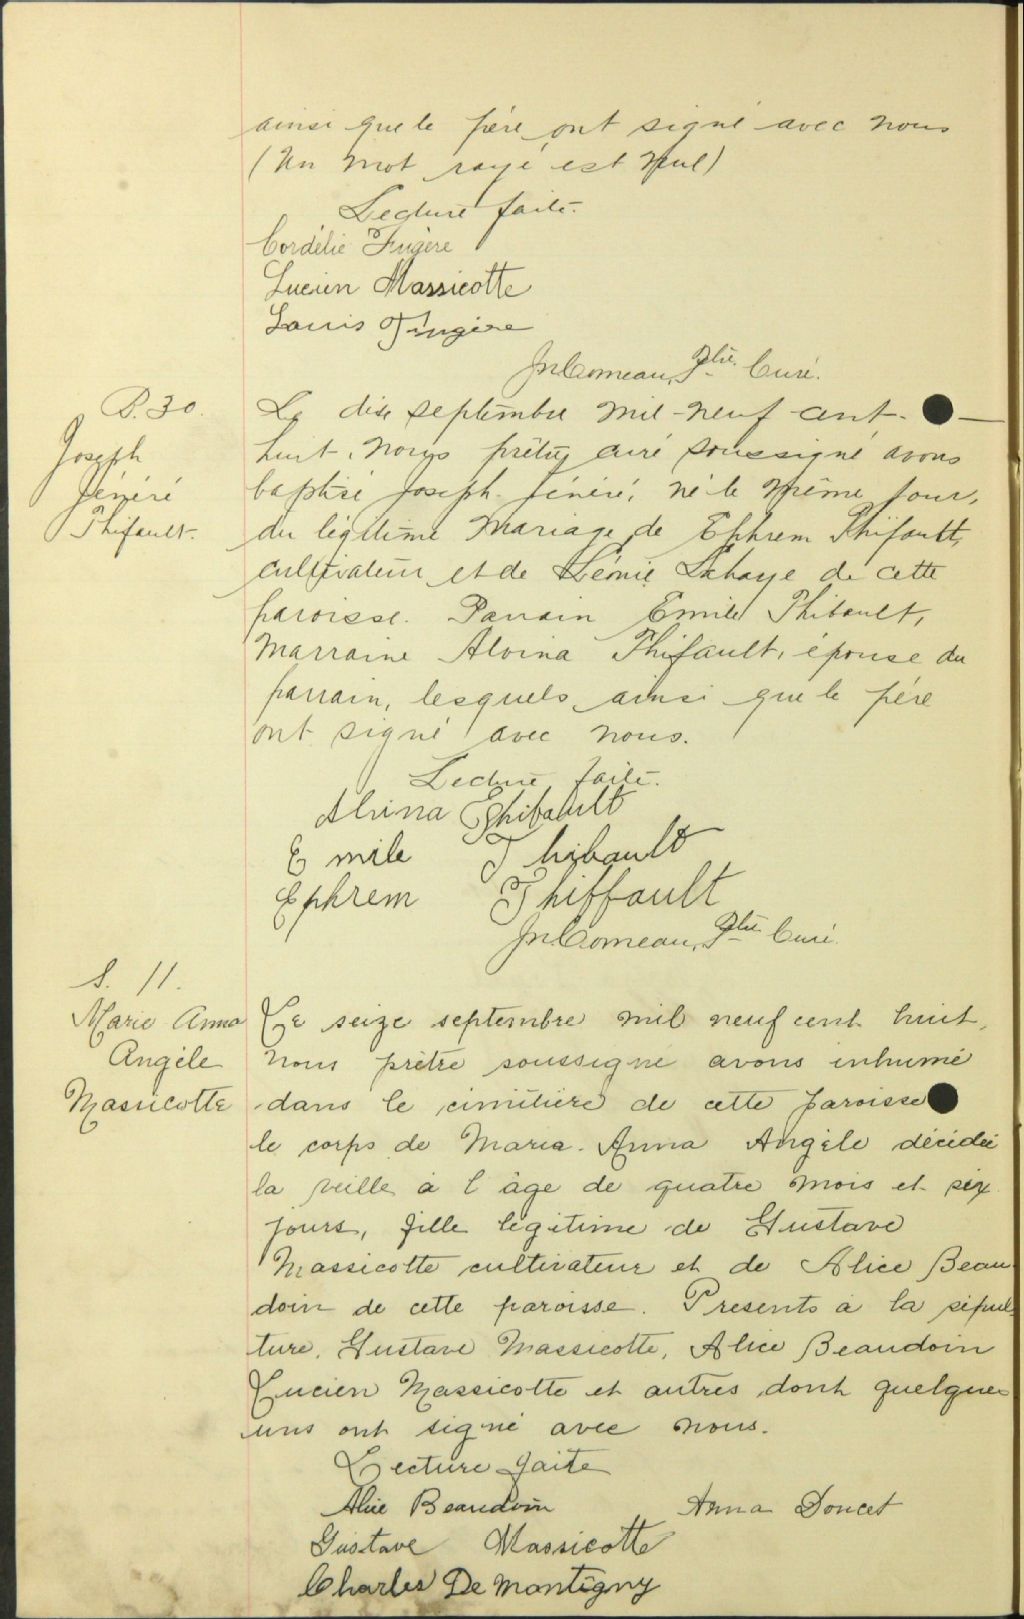 ainsi que le père ont signé avec nous
(Un mot rayé est nul)
Lecture faite.
Cordélie Fugère
Lucien Massicotte
Louis Fugère
Jn Comeau, Ptre. Curé.
B. 30.
Joseph
Fénéré
Thifault.
Le dix septembre mil-neuf cent-
huit, nous prêtre curé soussigné avons
baptisé Joseph Fénéré, né le même jour,
du légitime mariage de Ephrem Thifault,
cultivateur et de Léonie Lahaye de cette
paroisse. Parrain Emile Thibault,
Marraine Alvina Thifault, épouse du
parrain, lesquels ainsi que le père
ont signé avec nous.
Lecture faite.
Alvina Thibault
Emile Thibault
Ephrem Thiffault
Jn Comeau, Ptre Curé.
S. 11.
Marie Anna
Angèle
Massicotte
Le seize septembre mil neuf cent huit,
nous prêtre soussigné avons inhumé
dans le cimitière de cette paroisse
le corps de Maria-Anna Angèle décédée
la veille à l'âge de quatre mois et six
jours, fille légitime de Gustave
Massicotte cultivateur et de Alice Beau
doin de cette paroisse. Presents à la sépul-
ture, Gustave Massicotte, Alice Beaudoin
Lucien Massicotte et autres dont quelques
uns ont signé avec nous.
Lecture faite
Alice Beaudoin Anna Doucet
Gustave Massicotte
Charles De Montigny